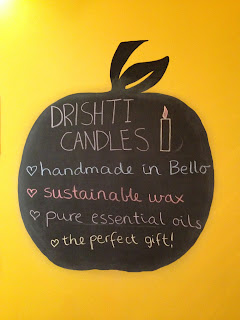 DRISHTI
CANDLES
♡ handmade in Bello
♡ sustainable wax
♡ pure essential oils
♡ the perfect gift!